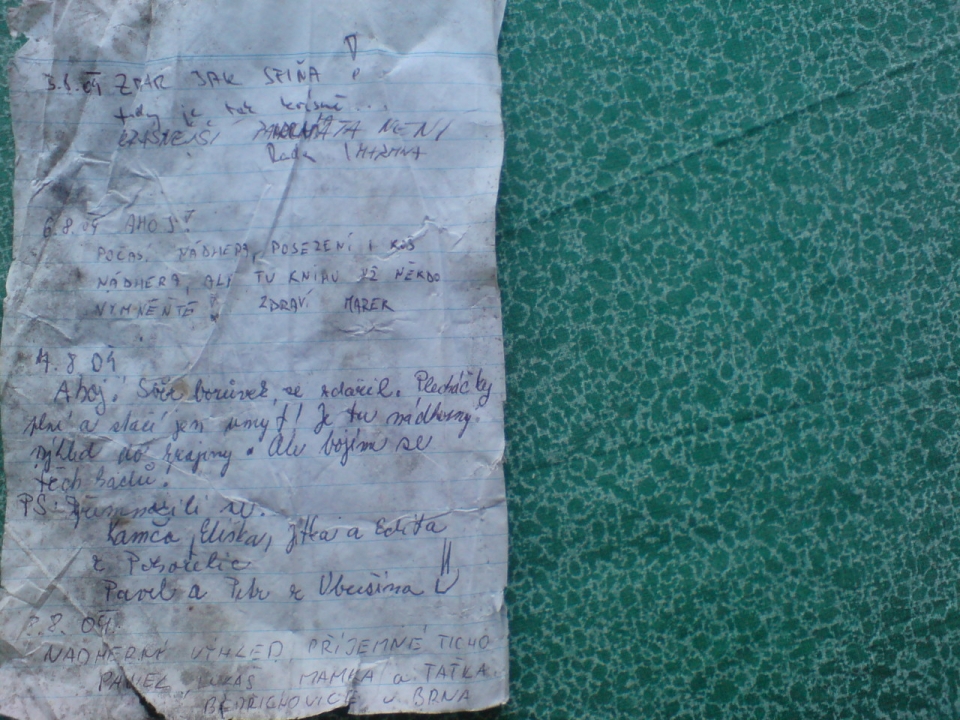 3.8.09 ZDAR JAK SVIŇA !
tady je tak krásně...
ÚŽASNĚJŠÍ NENÍ
Rada
6.8.09 AHOJ!
POČAS. NÁDHERA, POSEZENÍ I
NÁDHERA, ALE TU KNIHU UŽ NĚKDO
VYMNĚŇTE ! ZDRAVÍ MAREK
7.8.09
Ahoj! Sběr borůvek se zdařil. Plecháčky
plné a stačí jen umýt! Je tu nádherný
výhled do krajiny. Ale bojím se
těch hadů.
PS: Přemnožili se.
Kamča, Eliška, Jitka a Edita
z Pohořelic
Pavel a Petr z Ubušína
.8.09
NÁDHERNÝ VÝHLED PŘÍJEMNÉ TICHO
LUKÁŠ MAMKA a TAŤKA
BEDŘICHOVICE u BRNA